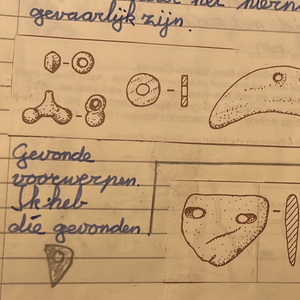 gevaarlijk zijn.
Gevonde
voorwerpen.
Ik heb
díe gevonden.